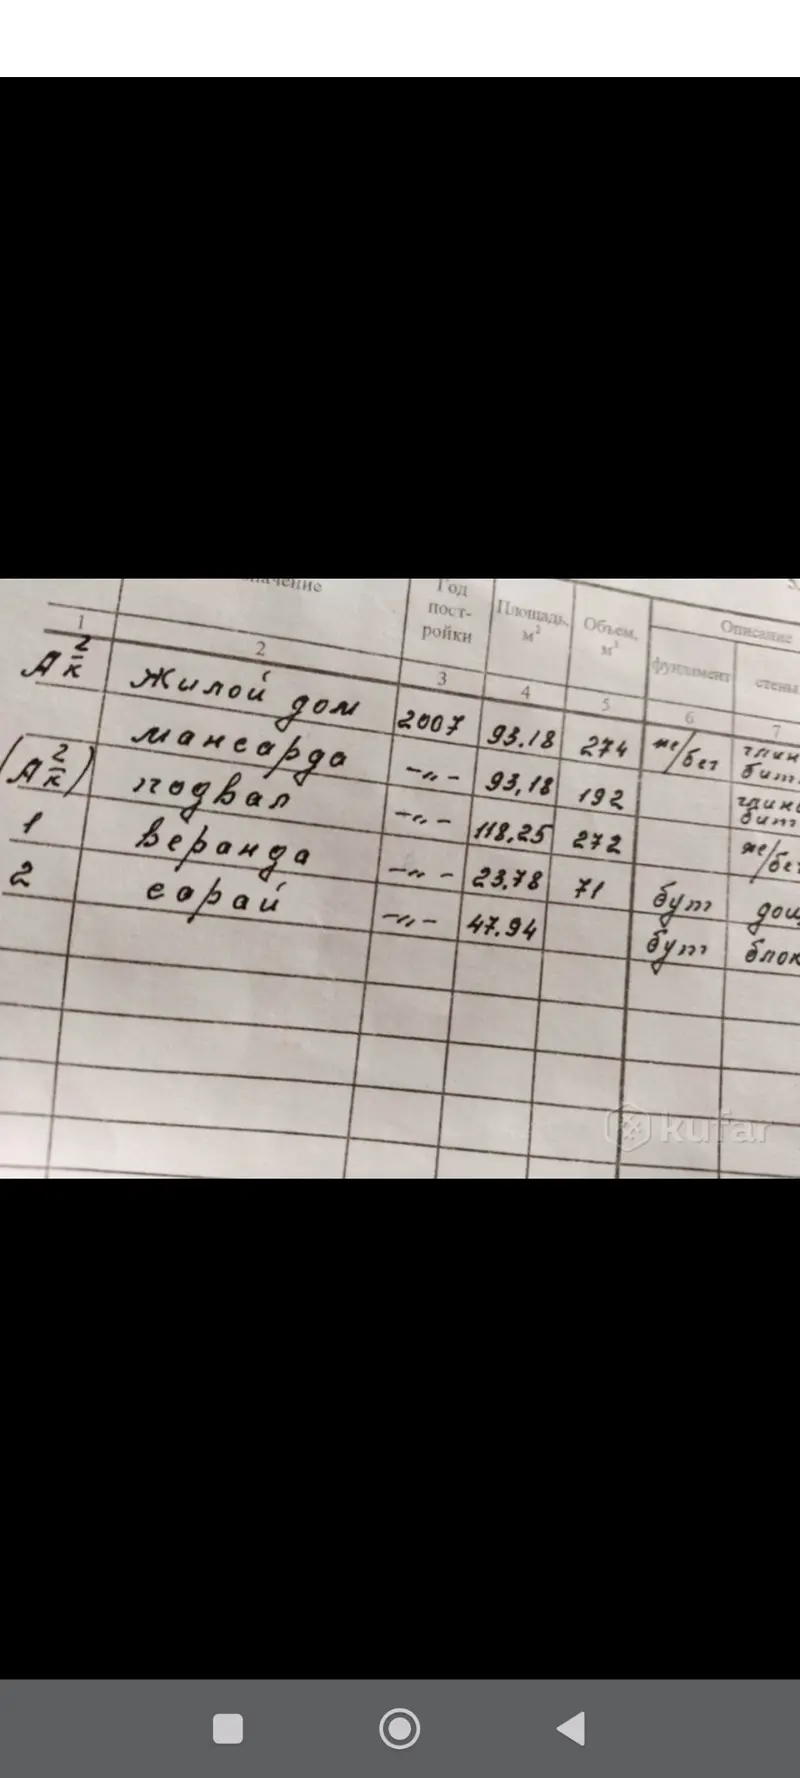 Год
пост-
ройки
Площадь,
м²
Объем,
м³
Описание
фундамент
1 2 3 4 5 6 7
А 2/к жилой дом 2007 93.18 274 же/бет
мансарда -„- 93,18 192
(А 2/к) подвал -„- 118.25 272 же/бет
1 веранда -„- 23.78 71 бут дощ
2 сарай -„- 47.94 бут блок
kufar